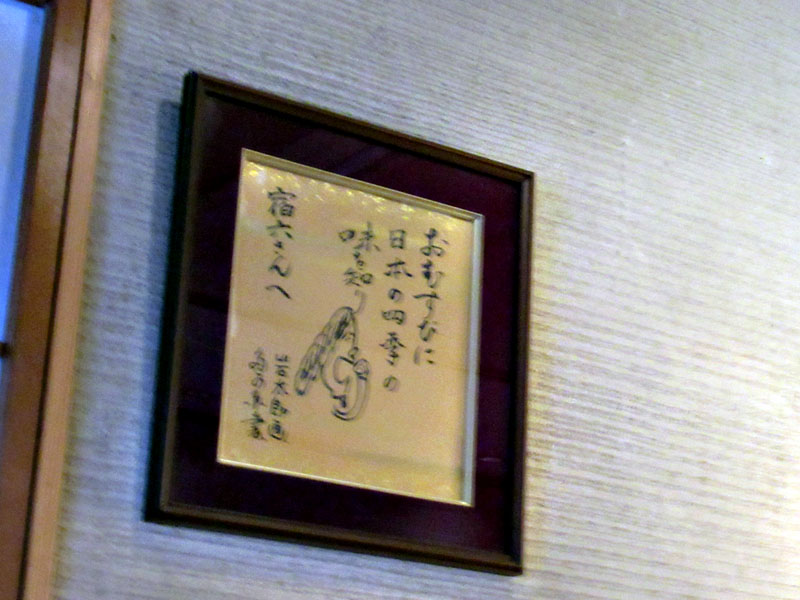 おむすびに
日本の四季の
味を知り
宿六さんへ
岩太郎画